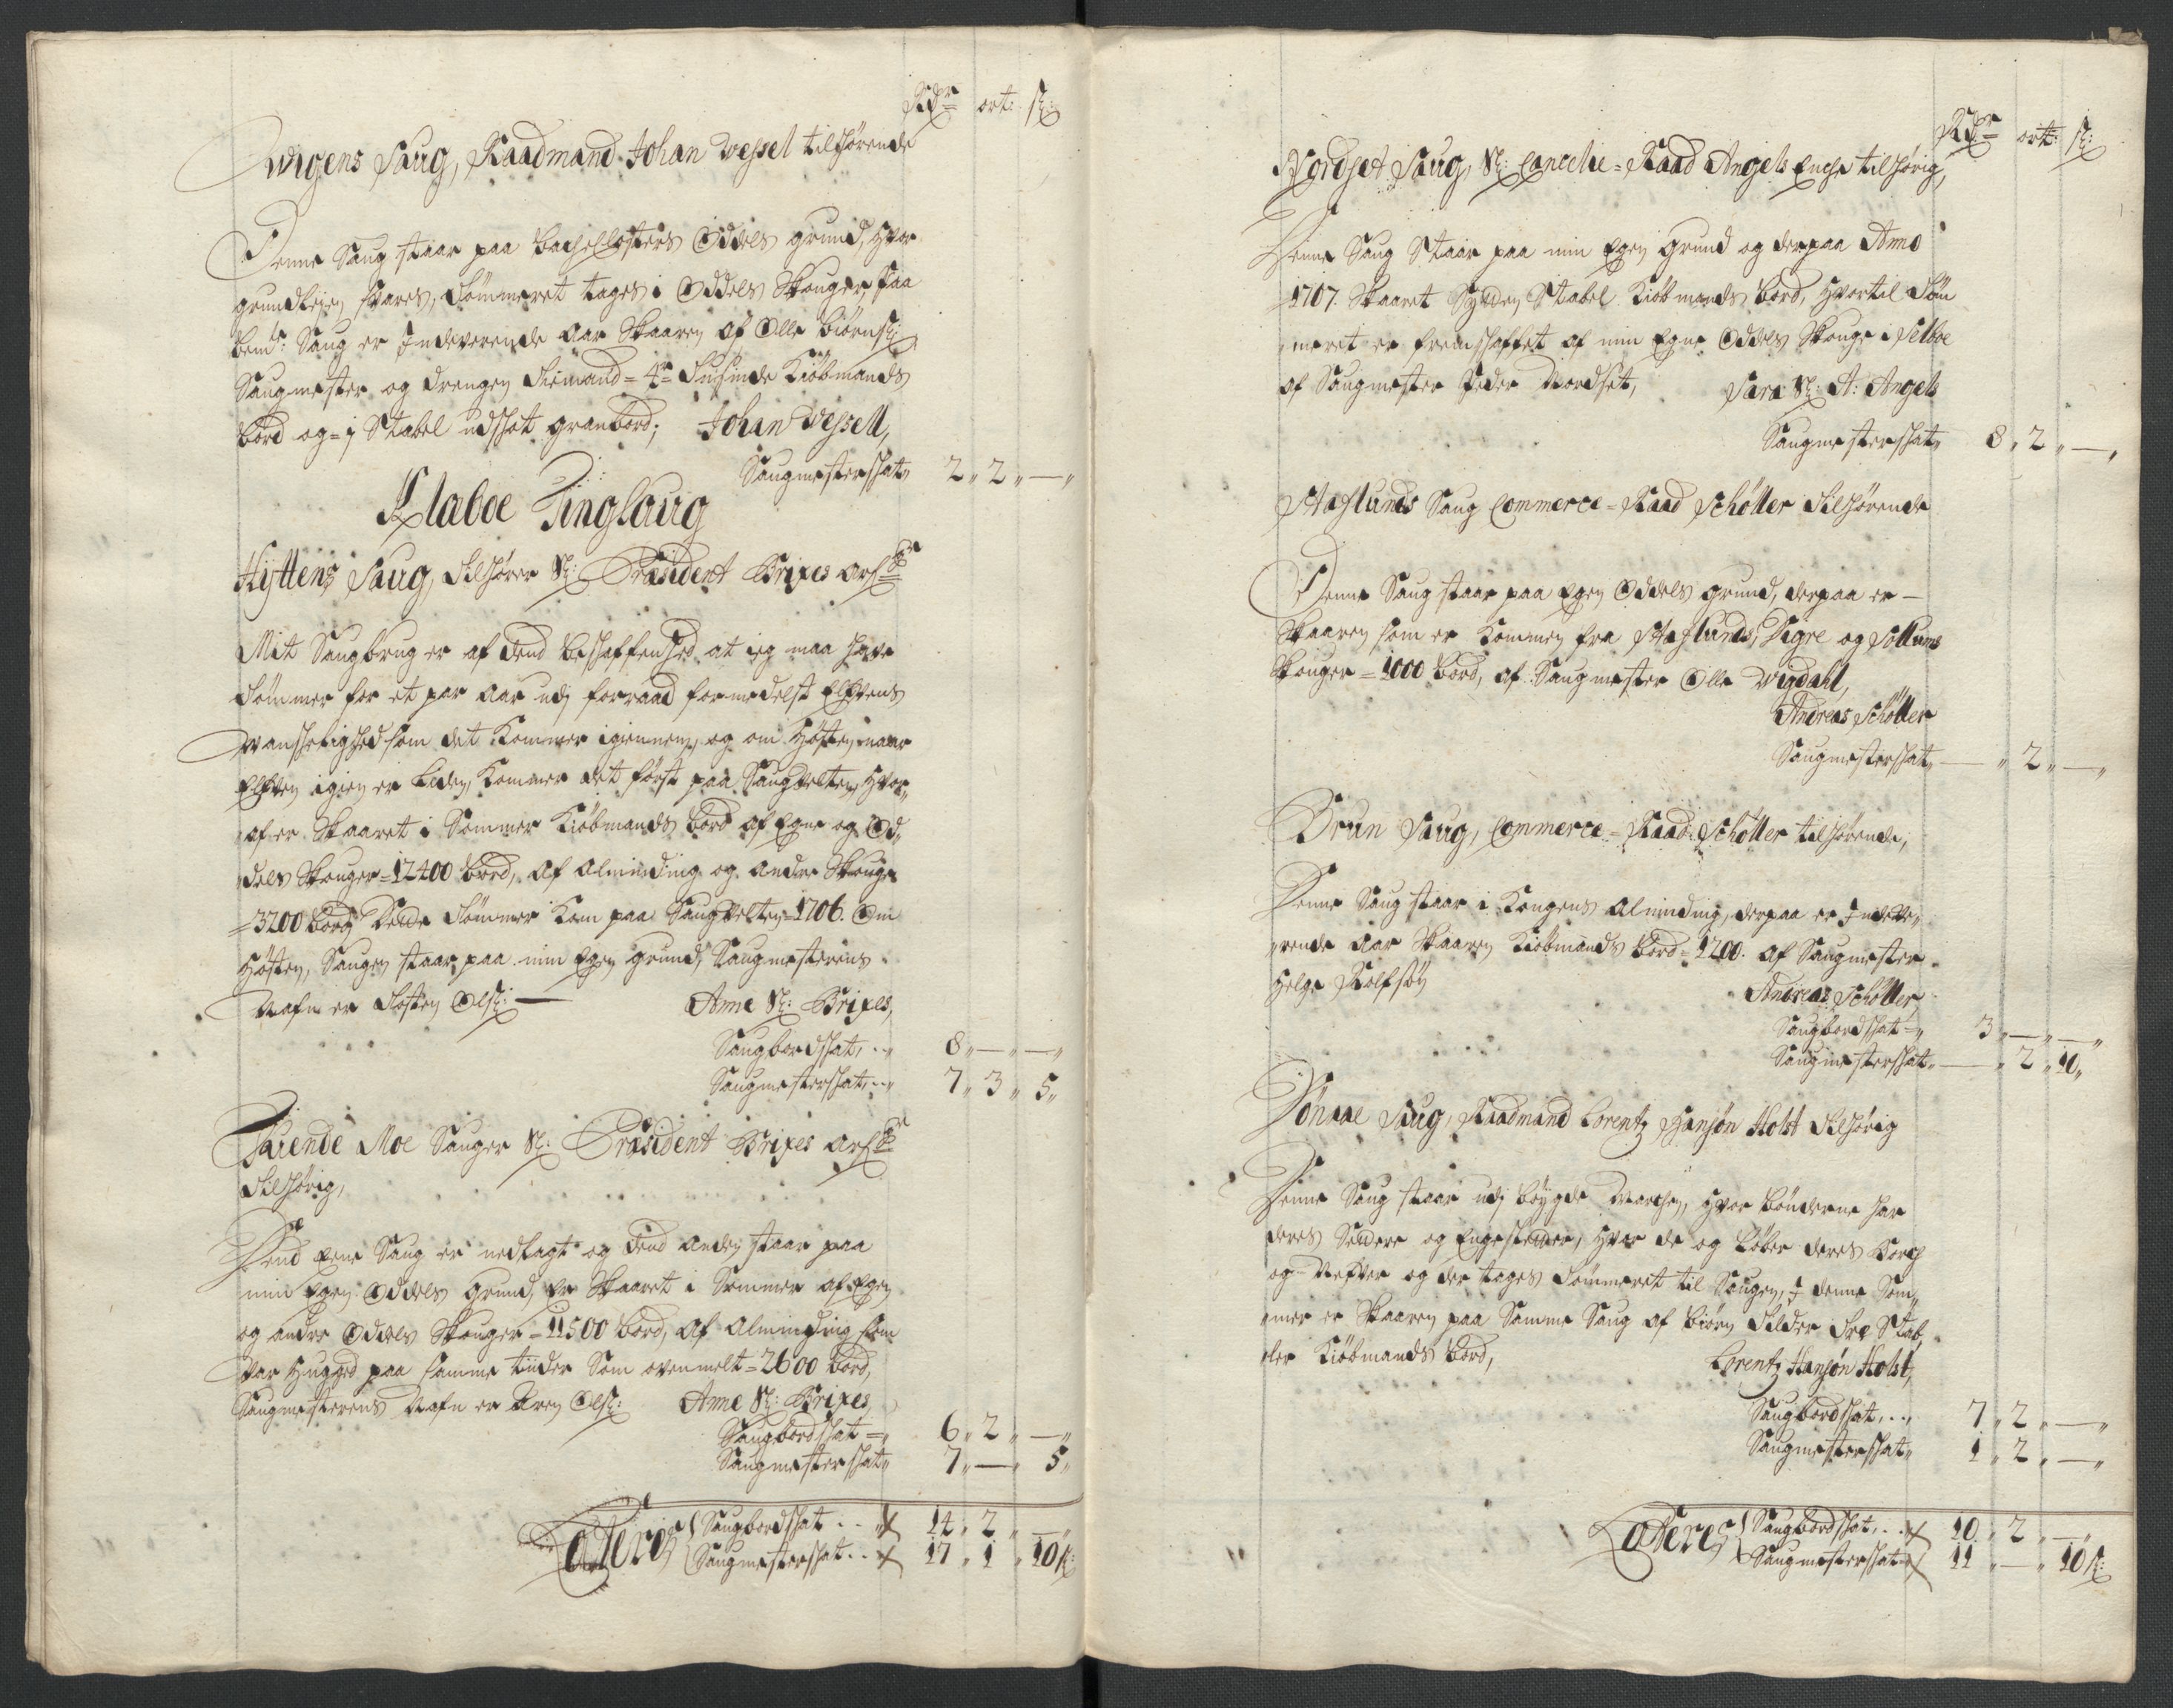 Rdr ort: s:
Wigens Saug, Raadmand Johan Wessel tilhørende
Denne Saug staar paa Bacheklosters Oddels grund, hvor
grundleien svares, Tømmeret tages i Oddels Skouger, Paa
bemte: Saug er Indeværende Aar Skaaren af Olle Biørns:
Saugmester og drengen Siemand = 4re Tusinde Kiøbmands
bord og = j Stabel udskot granbord; Johan Wessell,
Saugmesterskat„ 2„ 2„ —„
Klaboe Tinglaug
Hÿttens Saug, Tilhører Sl: Præsident Brixes Arfr
Mit Saugbrug er af dend beskaffenhed at ieg maa have
Tømmer for et par Aar udj forraad formedelst Elfvens
Wanskelighed som det kommer igiennem, og om Høsten naar
Elfven igien er Liden, kommer det først paa Saugvelten, hvor„
„af er Skaaret i Sommer Kiøbmands bord af Egne og Od„
„dels Skouger = 12400 bord, Af Alminding og andre Skouge
= 3200 bord Dette Tømmer kom paa Saugvelten = 1706. Om
Høsten, Saugen staar paa min Egen grund, Saugmesterens
Nafn er Tosten Ols: — Anne Sl: Brixes,
Saugbordskat, „ 8„ —„ —„
Saugmesterskat, „ 7„ 3„ 5„
Tuende Moe Sauger Sl: Præsident Brixes Arfr
Tilhørig,
Dend Eene Saug er nedlagt og dend anden staar paa
min Egen Oddels grund, Er Skaaret i Sommer af Egen
og andre Oddels Skouger = 11500 bord, Af Alminding som
var hugged paa samme tiider Som ovenmelt = 2600 bord,
Saugmesterens Nafn er Aren Ols: Anne Sl: Brixes,
Saugbordskat = „ 6„ 2„ —„
Saugmesterskat„ 7„ —„ 5„
Lateris { Saugbordskat .. „ 14„ 2„ —„
Saugmesterskat .. 17„ 1„ 10 s:
Rdr ort: s:
Nordset Saug, Sl: Cancelie = Raad Angels Enche tilhørig,
Denne Saug Staar paa min Egen grund og derpaa Anno
1707. Skaaret Sytten Stabel Kiøbmands bord, hvortil Tøm
„meret er fremskaffet af min Egne Oddels Skouge i Selboe
af Saugmester Peder Nordset, Sara Sl: A: Angels
Saugmesterskat„ 8„ 2„ —„
Staflunds Saug Commerce = Raad Schøller Tilhørende
Denne Saug staar paa Egen Oddels grund, derpaa er —
Skaaren som er kommen fra Staflunds, Digre og Sollums
Skouger = 1000 bord, af Saugmester Olle Wigdahl,
Andreas Schøller
Saugmesterskat„ — „ 2„ —„
Brun Saug, Commerce = Raad: Schøller tilhørende,
Denne Saug staar i Kongens Alminding, derpaa er Indevæ„
„rende Aar Skaaren Kiøbmands bord = 1200. af Saugmester
Helge Rolfsøn Andreas Schøller,
Saugbordskat = „ 3„ —„ —„
Saugmesterskat„ — „ 2„ 10„
Tønaae Saug, Raadmand Lorentz Hansøn Holst Tilhørig
Denne Saug staar udj bøygde Marchen, hvor bønderne har
deres Seedere og Engesletter, hvor de og Løber deres Borch
og Nefver og der tages Tømmeret til Saugen, I denne Som„
„mer er Skaaren paa Samme Saug af Biørn Tilder Tre Stab„
„ler Kiøbmands bord, Lorentz Hansøn Holst,
Saugbordskat, „ 7„ 2„ —„
Saugmesterskat„ 1„ 2„ —„
Lateris { Saugbordskat, .. 10„ 2„ —„
Saugmesterskat„ 11„ —„ 10 s: